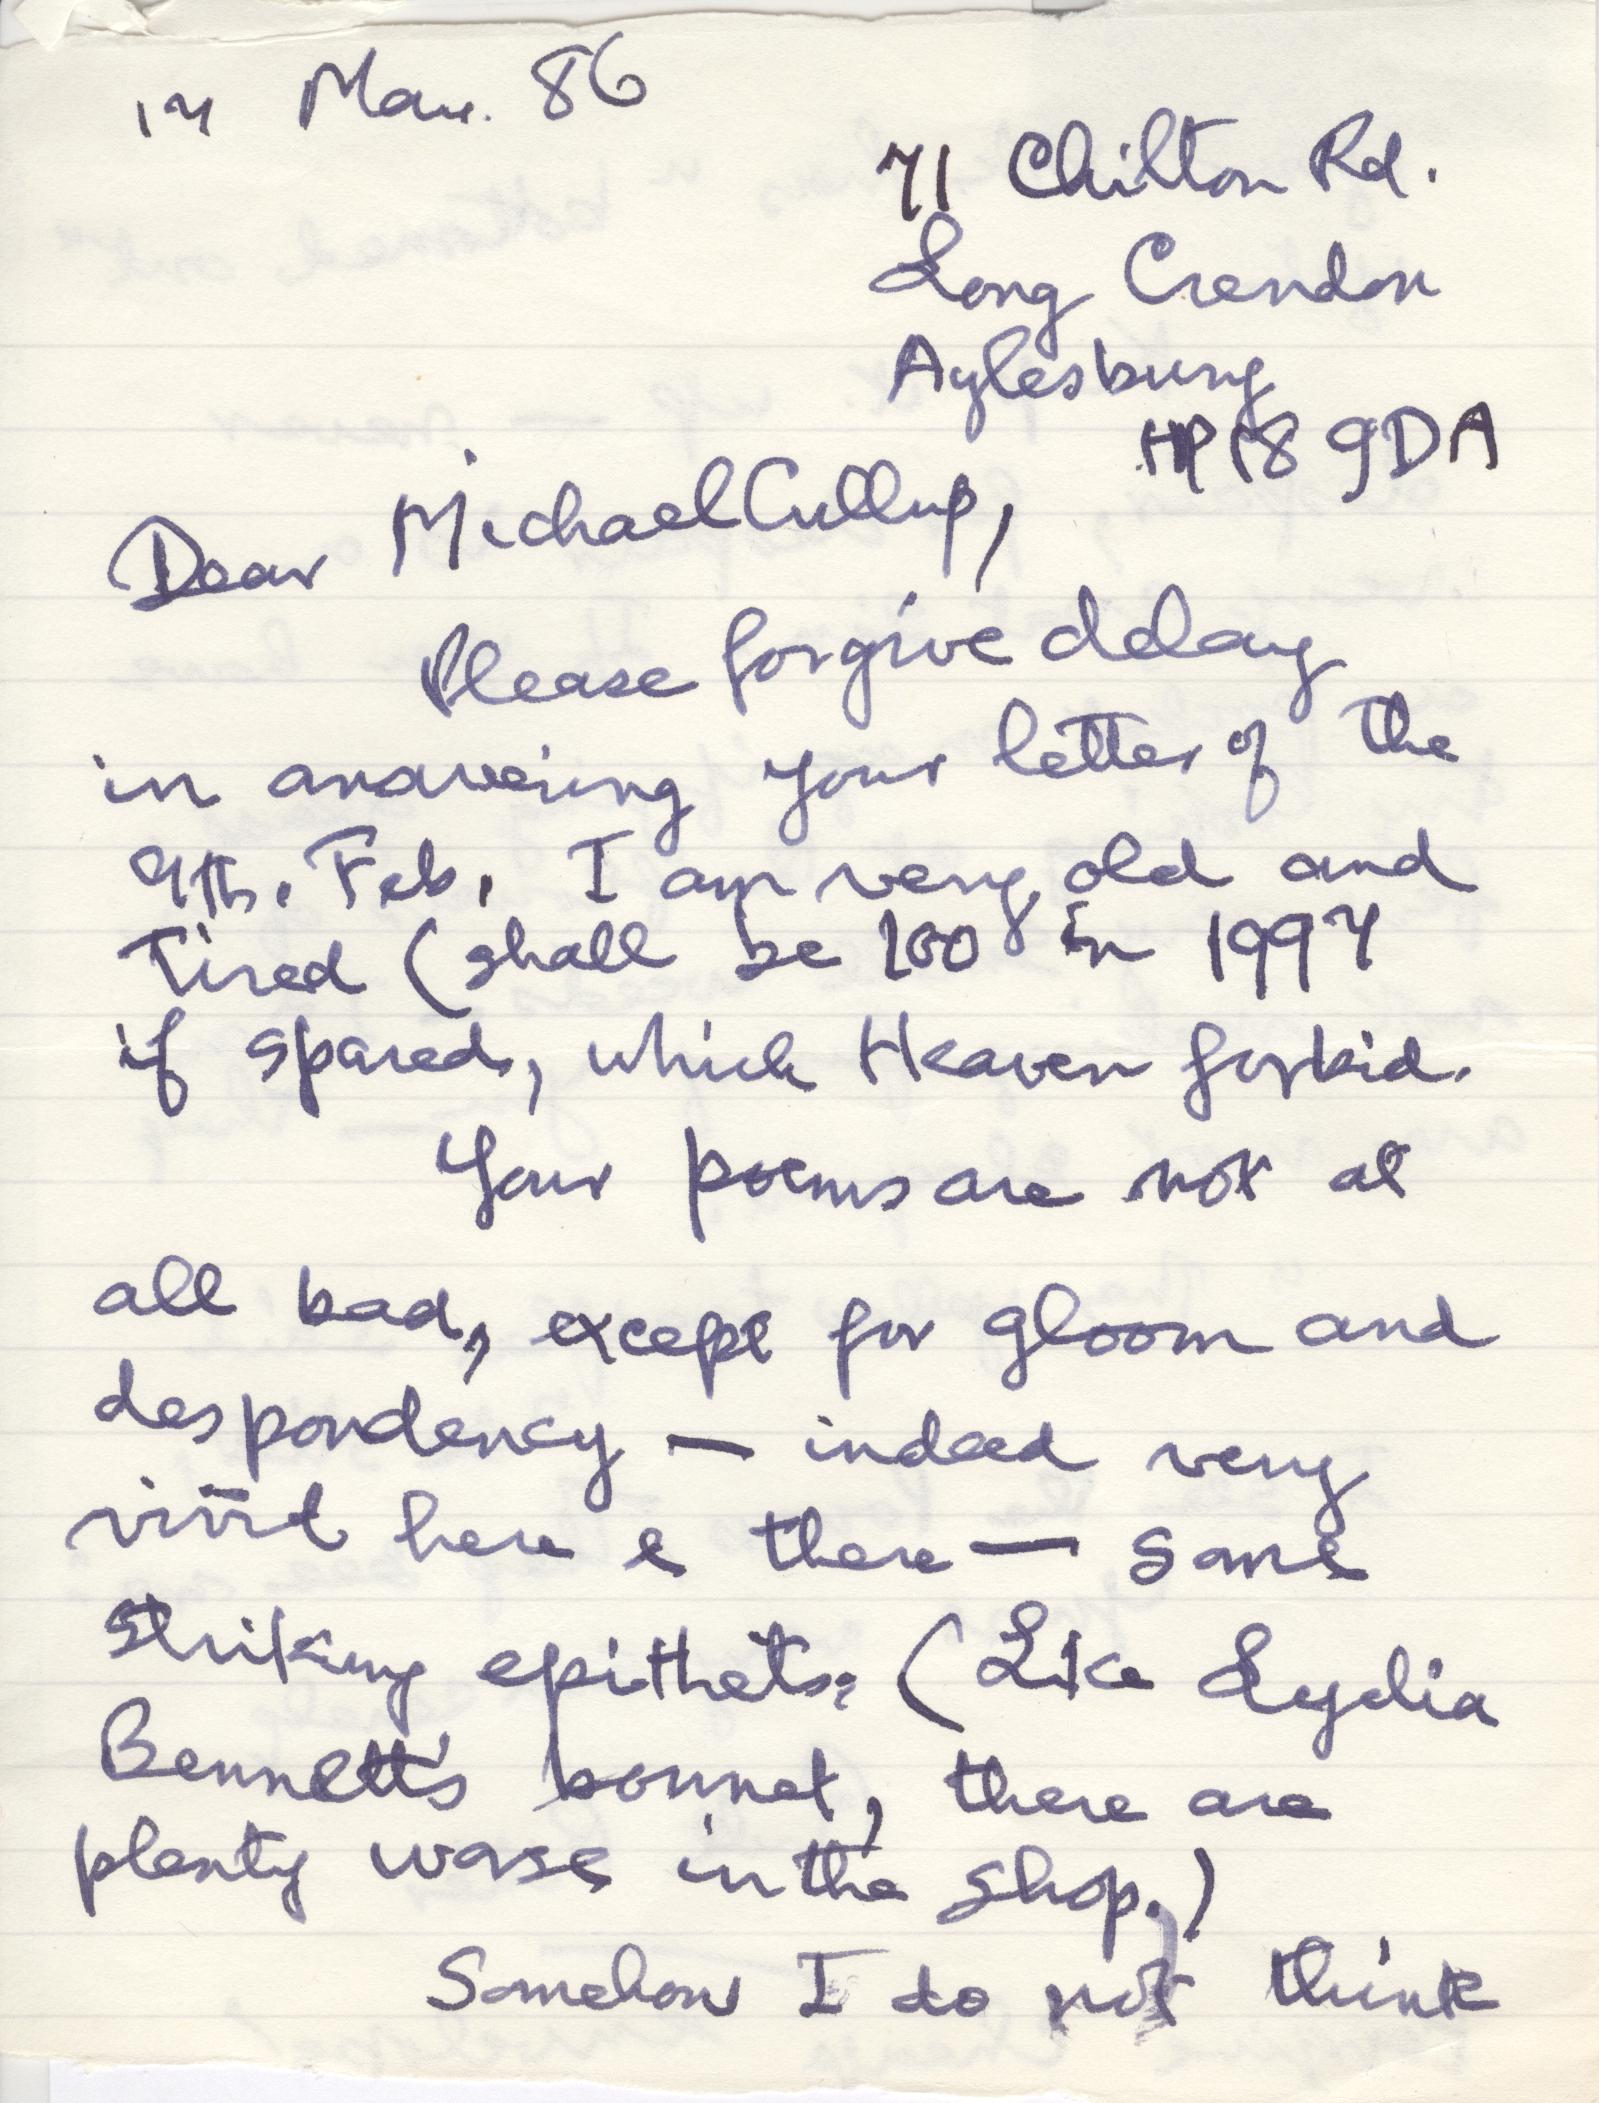 17 Mar. 86
71 Chilton Rd.
Long Crendon
Aylesbury
HP18 9DA
Dear Michael Cullup,
Please forgive delay
in answering your letter of the
9th. Feb. I am very old and
tired (shall be 100 in 1997
if spared, which Heaven forbid.
Your poems are not at
all bad, except for gloom and
despondency — indeed very
vivid here & there — some
striking epithets. (Like Lydia
Bennett's bonnet, there are
plenty worse in the shop.)
Somehow I do not think